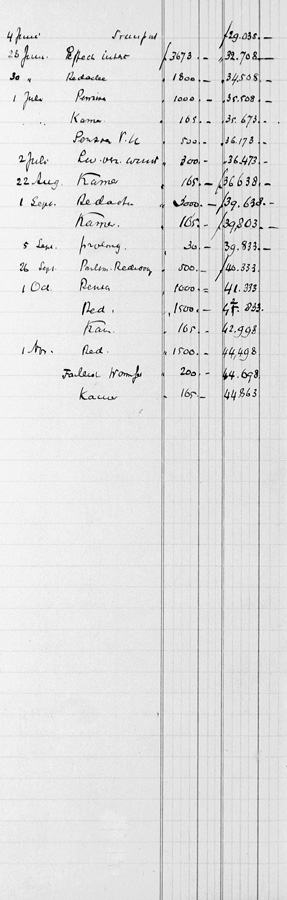 4 Juni Transport 29.035.—
23 Juni Effect. intrt f 3673.— 32.708.—
30 " Redactie " 1800.— 34.508.—
1 Juli Pensioen " 1000.— 35.508.—
" Kamer " 165.— 35.673.—
" 500.— 36.173.—
2 Juli " 300.— 36.473.—
22 Aug. Kamer " 165.— f 36638.—
1 Sept. Redactie " 3000.— f 39.638.—
Kamer. " 165.— f 39,803.—
5 Sept. " 30.— 39.833.—
26 Sept. " 500.— f 40.333.
1 Oct. " 1000= 41.333
Red. " 1500.— 42.833.
Kam. " 165.— 42.998
1 Nov. Red. " 1500.— 44,498
" 200.— 44.698
Kamer " 165.— 44863